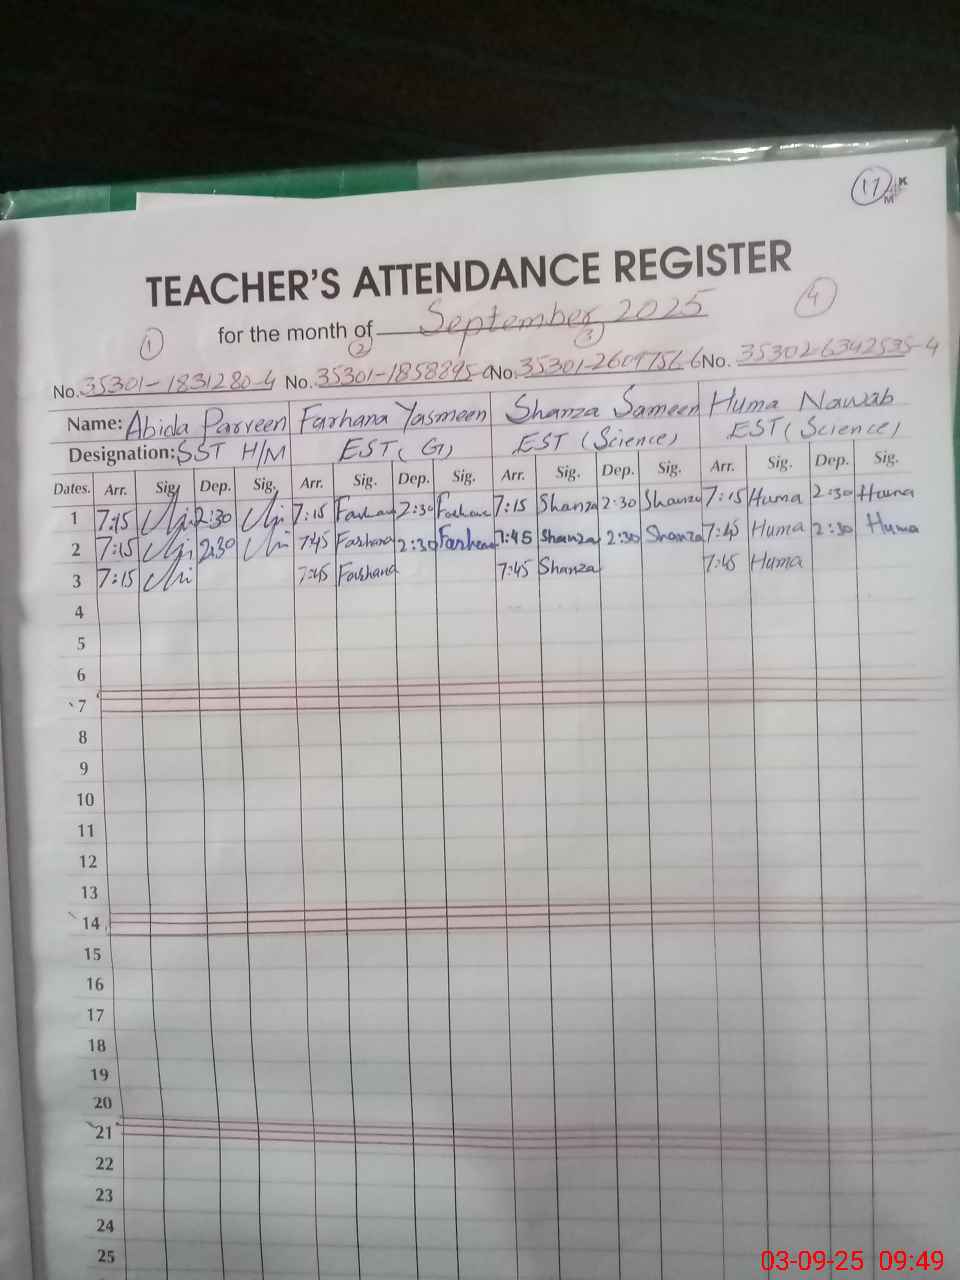 17
MK
TEACHER'S ATTENDANCE REGISTER
for the month of September 2025
1 2 3 4
No. 35301-1831280-4 No. 35301-1858895-0 No. 35301-2609756-6 No. 35302-6342535-4
Name: Abida Parveen Farhana Yasmeen Shanza Sameen Huma Nawab
Designation: SST H/M EST (G) EST (Science) EST (Science)
Dates. Arr. Sig. Dep. Sig. Arr. Sig. Dep. Sig. Arr. Sig. Dep. Sig. Arr. Sig. Dep. Sig.
1 7:15 2:30 7:15 Farhana 2:30 Farhana 7:15 Shanza 2:30 Shanza 7:15 Huma 2:30 Huma
2 7:15 2:30 7:45 Farhana 2:30 Farhana 7:45 Shanza 2:30 Shanza 7:45 Huma 2:30 Huma
3 7:15 7:45 Farhana 7:45 Shanza 7:45 Huma
4
5
6
7
8
9
10
11
12
13
14
15
16
17
18
19
20
21
22
23
24
25
03-09-25 09:49